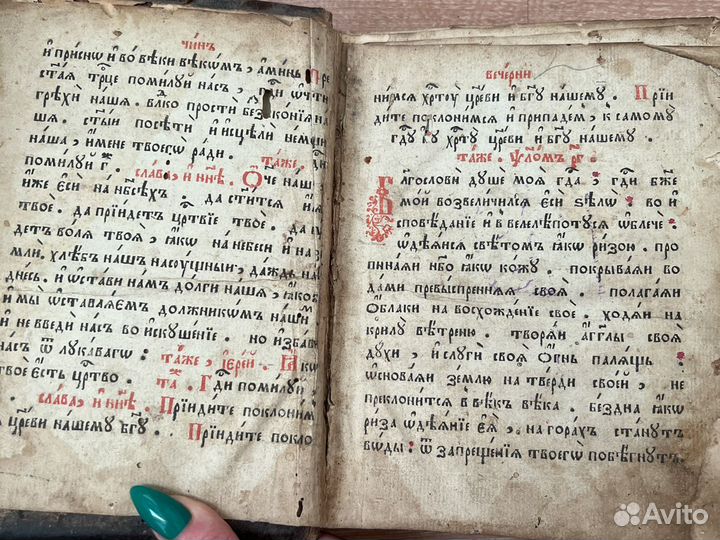 чи́нъ
И҆ при́снѡ и҆ во́ вѣки вѣко́мъ, а҆ми́нь. Пре
ст҃а́я трⷪ҇це поми́луй на́съ, гдⷭ҇и ѡ҆чⷭ҇ти
грѣхи́ на́шѧ. влⷣко прости́ беззако́нїѧ на
шѧ. ст҃ы́й посѣти́ и҆ и҆сцѣли́ не́мощи
на́шѧ, и҆́мене твоегѡ̀ ра́ди. та́же, гдⷭ҇и
поми́луй г҃. сла́ва, и҆ ны́нѣ. Ѻ҆́че на́шъ
и҆́же є҆сѝ на нб҃сѣхъ. да ст҃и́тсѧ
твоѐ. да прїи́детъ црⷭ҇твїе твоѐ. да
детъ во́лѧ твоѧ̀, ꙗ҆́кѡ на небесѝ и҆ на з
млѝ, хлѣ́бъ на́шъ насу́щный, да́ждь на
дне́сь. и҆ ѡ҆ста́ви на́мъ до́лги на́шѧ, ꙗ҆́коже
и҆ мы̀ ѡ҆ставлѧ́емъ должнико́мъ на́шим
и҆ не введѝ на́съ во и҆скуше́нїе. но и҆зба́ви
на́съ ѿ лука́вагѡ: та́же, і҆ере́й. Ꙗ҆́кѡ
твоѐ є҆́сть црⷭ҇тво. Гдⷭ҇и поми́луй
сла́ва, и҆ ны́нѣ. Прїиди́те поклоним
цр҃еви на́шему бг҃у. Прїиди́те покло
вече́рни
ни́мсѧ хрⷭ҇ту̀ цр҃еви и҆ бг҃у на́шему. Прїи
ди́те поклони́мсѧ и҆ припаде́мъ, к самому̀
гдⷭ҇у ку хрⷭ҇ту̀ цр҃еви и҆ бг҃у на́шему.
та́же. ѱало́мъ рг҃.
Благослови̏ душѐ моѧ̀ гдⷭ҇а, гдⷭ҇и бж҃е
мо́й возвели́чилсѧ є҆сѝ ѕѣлѡ̀. во и҆
сповѣ́данїе и҆ в велелѣ́поту ѡ҆блече́сѧ.
ѡ҆дѣ́ѧйсѧ свѣ́томъ ꙗ҆́кѡ ри́зою. про
пина́ѧй нб҃о ꙗ҆́кѡ ко́жу. покрыва́ѧй во
да́ми превы́спреннѧѧ своѧ̀. полага́ѧй
ѻ҆́блаки на восхожде́нїе своѐ. ходѧ́й на
крилу̀ вѣ́треню. творѧ́й а҆́гг҃лы своѧ̀
ду́хи, и҆ слуги̏ своѧ̀ ѻ҆́гнь палѧ́щь.
ѡ҆снова́ѧй зе́млю на тве́рди свое́й, не
преклони́тсѧ в вѣ́къ вѣ́ка. бе́здна ꙗ҆́кѡ
ри́за ѡ҆дѣѧ́нїе є҆ѧ̀, на гора́хъ ста́нутъ
во́ды: ѿ запреще́нїѧ твоегѡ̀ побѣ́гнутъ.
Avito